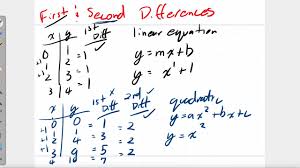 First & Second Differences
x y 1st Diff
linear equation
0 1
+1 1 2 = 1
y = mx + b
+1 2 3 = 1
y = x + 1
3 4 = 1
x y 1st Diff 2nd Diff
quadratic
0 0
y = ax² + bx + c
+1 1 1 = 1
+1 2 4 = 3 = 2
y = x²
3 9 = 5 = 2
4 = 7 = 2